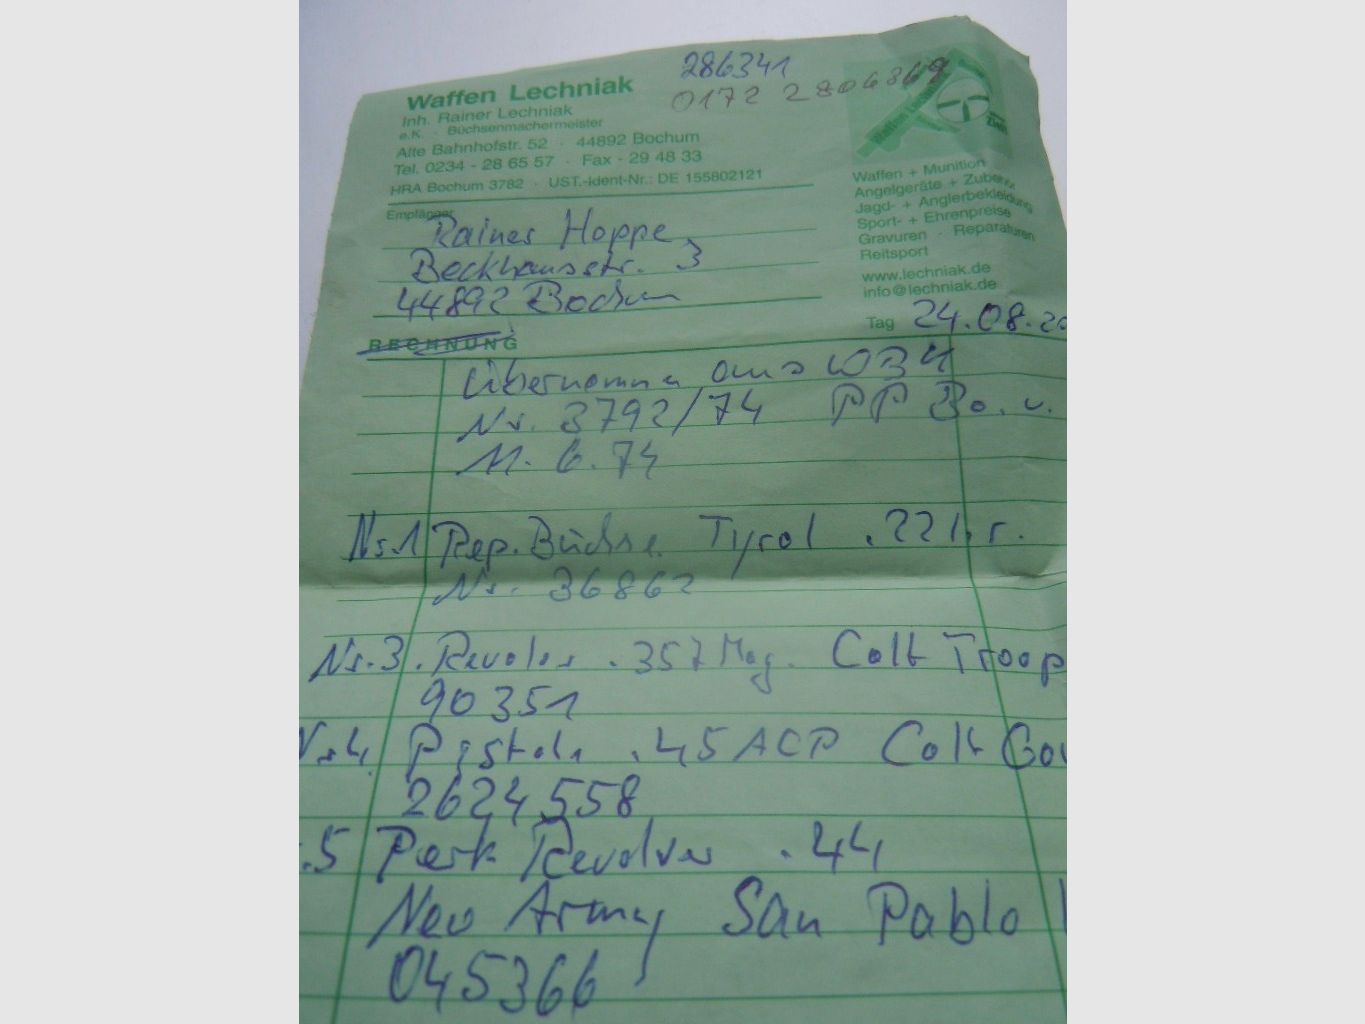 286341
0172 2806869
Waffen Lechniak
Inh. Rainer Lechniak
e.K. · Büchsenmachermeister
Alte Bahnhofstr. 52 · 44892 Bochum
Tel. 0234 - 28 65 57 · Fax - 29 48 33
HRA Bochum 3782 · UST.-Ident-Nr.: DE 155802121
Waffen + Munition
Angelgeräte + Zubehör
Jagd- + Anglerbekleidung
Sport- + Ehrenpreise
Gravuren · Reparaturen
Reitsport
www.lechniak.de
info@lechniak.de
Empfänger
Rainer Hoppe
Beckhausstr. 3
44892 Bochum
Tag 24.08.20
RECHNUNG
Übernomma aus WBK
Nr. 3792/74 PP Bo. v.
11. 6. 74
Nr.1 Rep. Büchse Tyrol .22 l.r.
Nr. 36862
Nr.3. Revolver .357 Mag. Colt Troop
90351
Nr4. Pistole .45 ACP Colt Gov
2624558
.5 Perk. Revolver .44
New Army San Pablo
045366